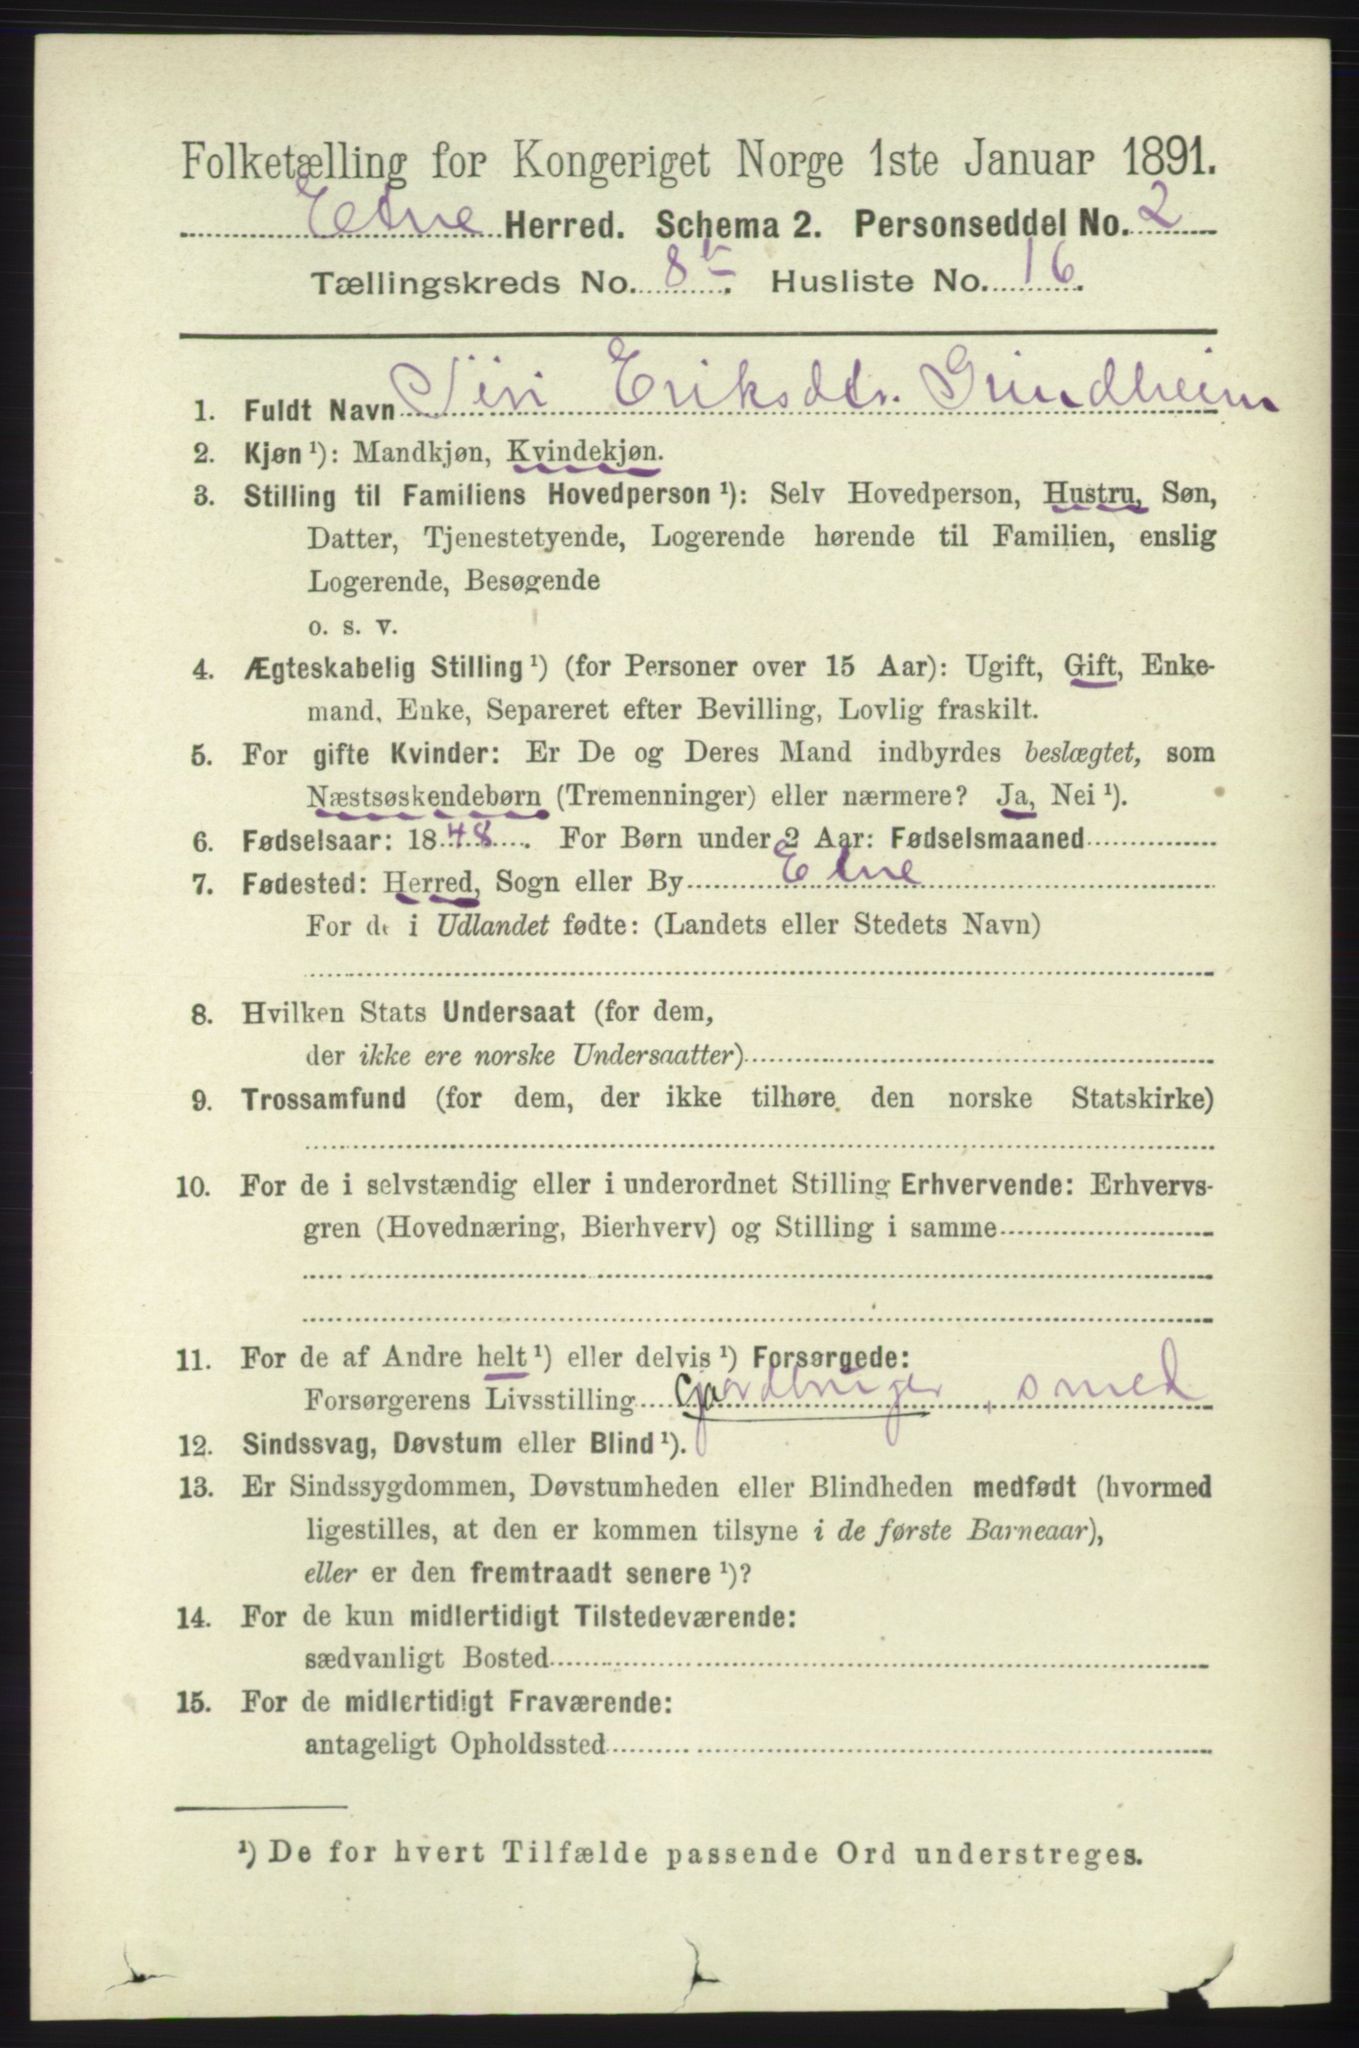 Folketælling for Kongeriget Norge 1ste Januar 1891.
Etne Herred. Schema 2. Personseddel No. 2
Tællingskreds No. 8 b. Husliste No. 16.
1. Fuldt Navn Siri Eriksdtr. Grindheim
2. Kjøn ¹): Mandkjøn, Kvindekjøn.
3. Stilling til Familiens Hovedperson ¹): Selv Hovedperson, Hustru, Søn,
Datter, Tjenestetyende, Logerende hørende til Familien, enslig
Logerende, Besøgende
o. s. v.
4. Ægteskabelig Stilling ¹) (for Personer over 15 Aar): Ugift, Gift, Enke-
mand, Enke, Separeret efter Bevilling, Lovlig fraskilt.
5. For gifte Kvinder: Er De og Deres Mand indbyrdes beslægtet, som
Næstsøskendebørn (Tremenninger) eller nærmere? Ja, Nei ¹).
6. Fødselsaar: 1848. For Børn under 2 Aar: Fødselsmaaned
7. Fødested: Herred, Sogn eller By Etne
For de i Udlandet fødte: (Landets eller Stedets Navn)
8. Hvilken Stats Undersaat (for dem,
der ikke ere norske Undersaatter)
9. Trossamfund (for dem, der ikke tilhøre den norske Statskirke)
10. For de i selvstændig eller i underordnet Stilling Erhvervende: Erhvervs-
gren (Hovednæring, Bierhverv) og Stilling i samme
11. For de af Andre helt ¹) eller delvis ¹) Forsørgede:
Forsørgerens Livsstilling Gjardbruger, smed
12. Sindssvag, Døvstum eller Blind ¹).
13. Er Sindssygdommen, Døvstumheden eller Blindheden medfødt (hvormed
ligestilles, at den er kommen tilsyne i de første Barneaar),
eller er den fremtraadt senere ¹)?
14. For de kun midlertidigt Tilstedeværende:
sædvanligt Bosted
15. For de midlertidigt Fraværende:
antageligt Opholdssted
¹) De for hvert Tilfælde passende Ord understreges.